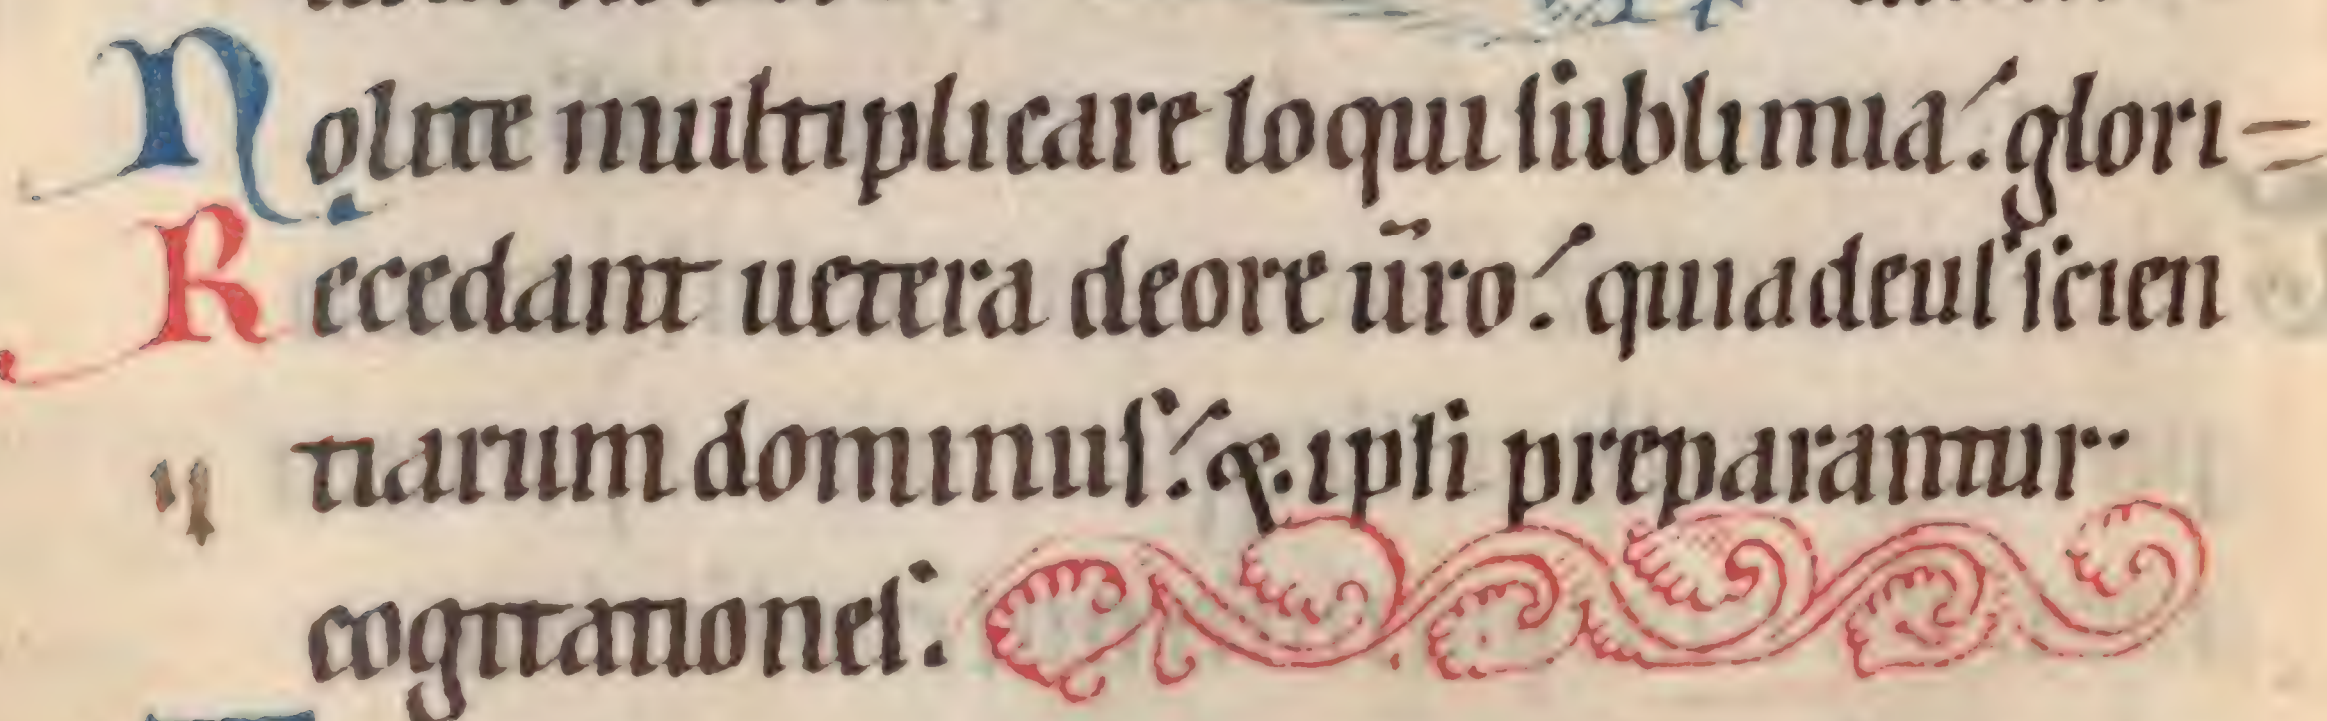 Nolite multiplicare loqui sublimia. glori=
Recedant uetera deore ur̃o. quiadeus scien
tiarum dominus. & ipsi preparantur.
cogitationes.